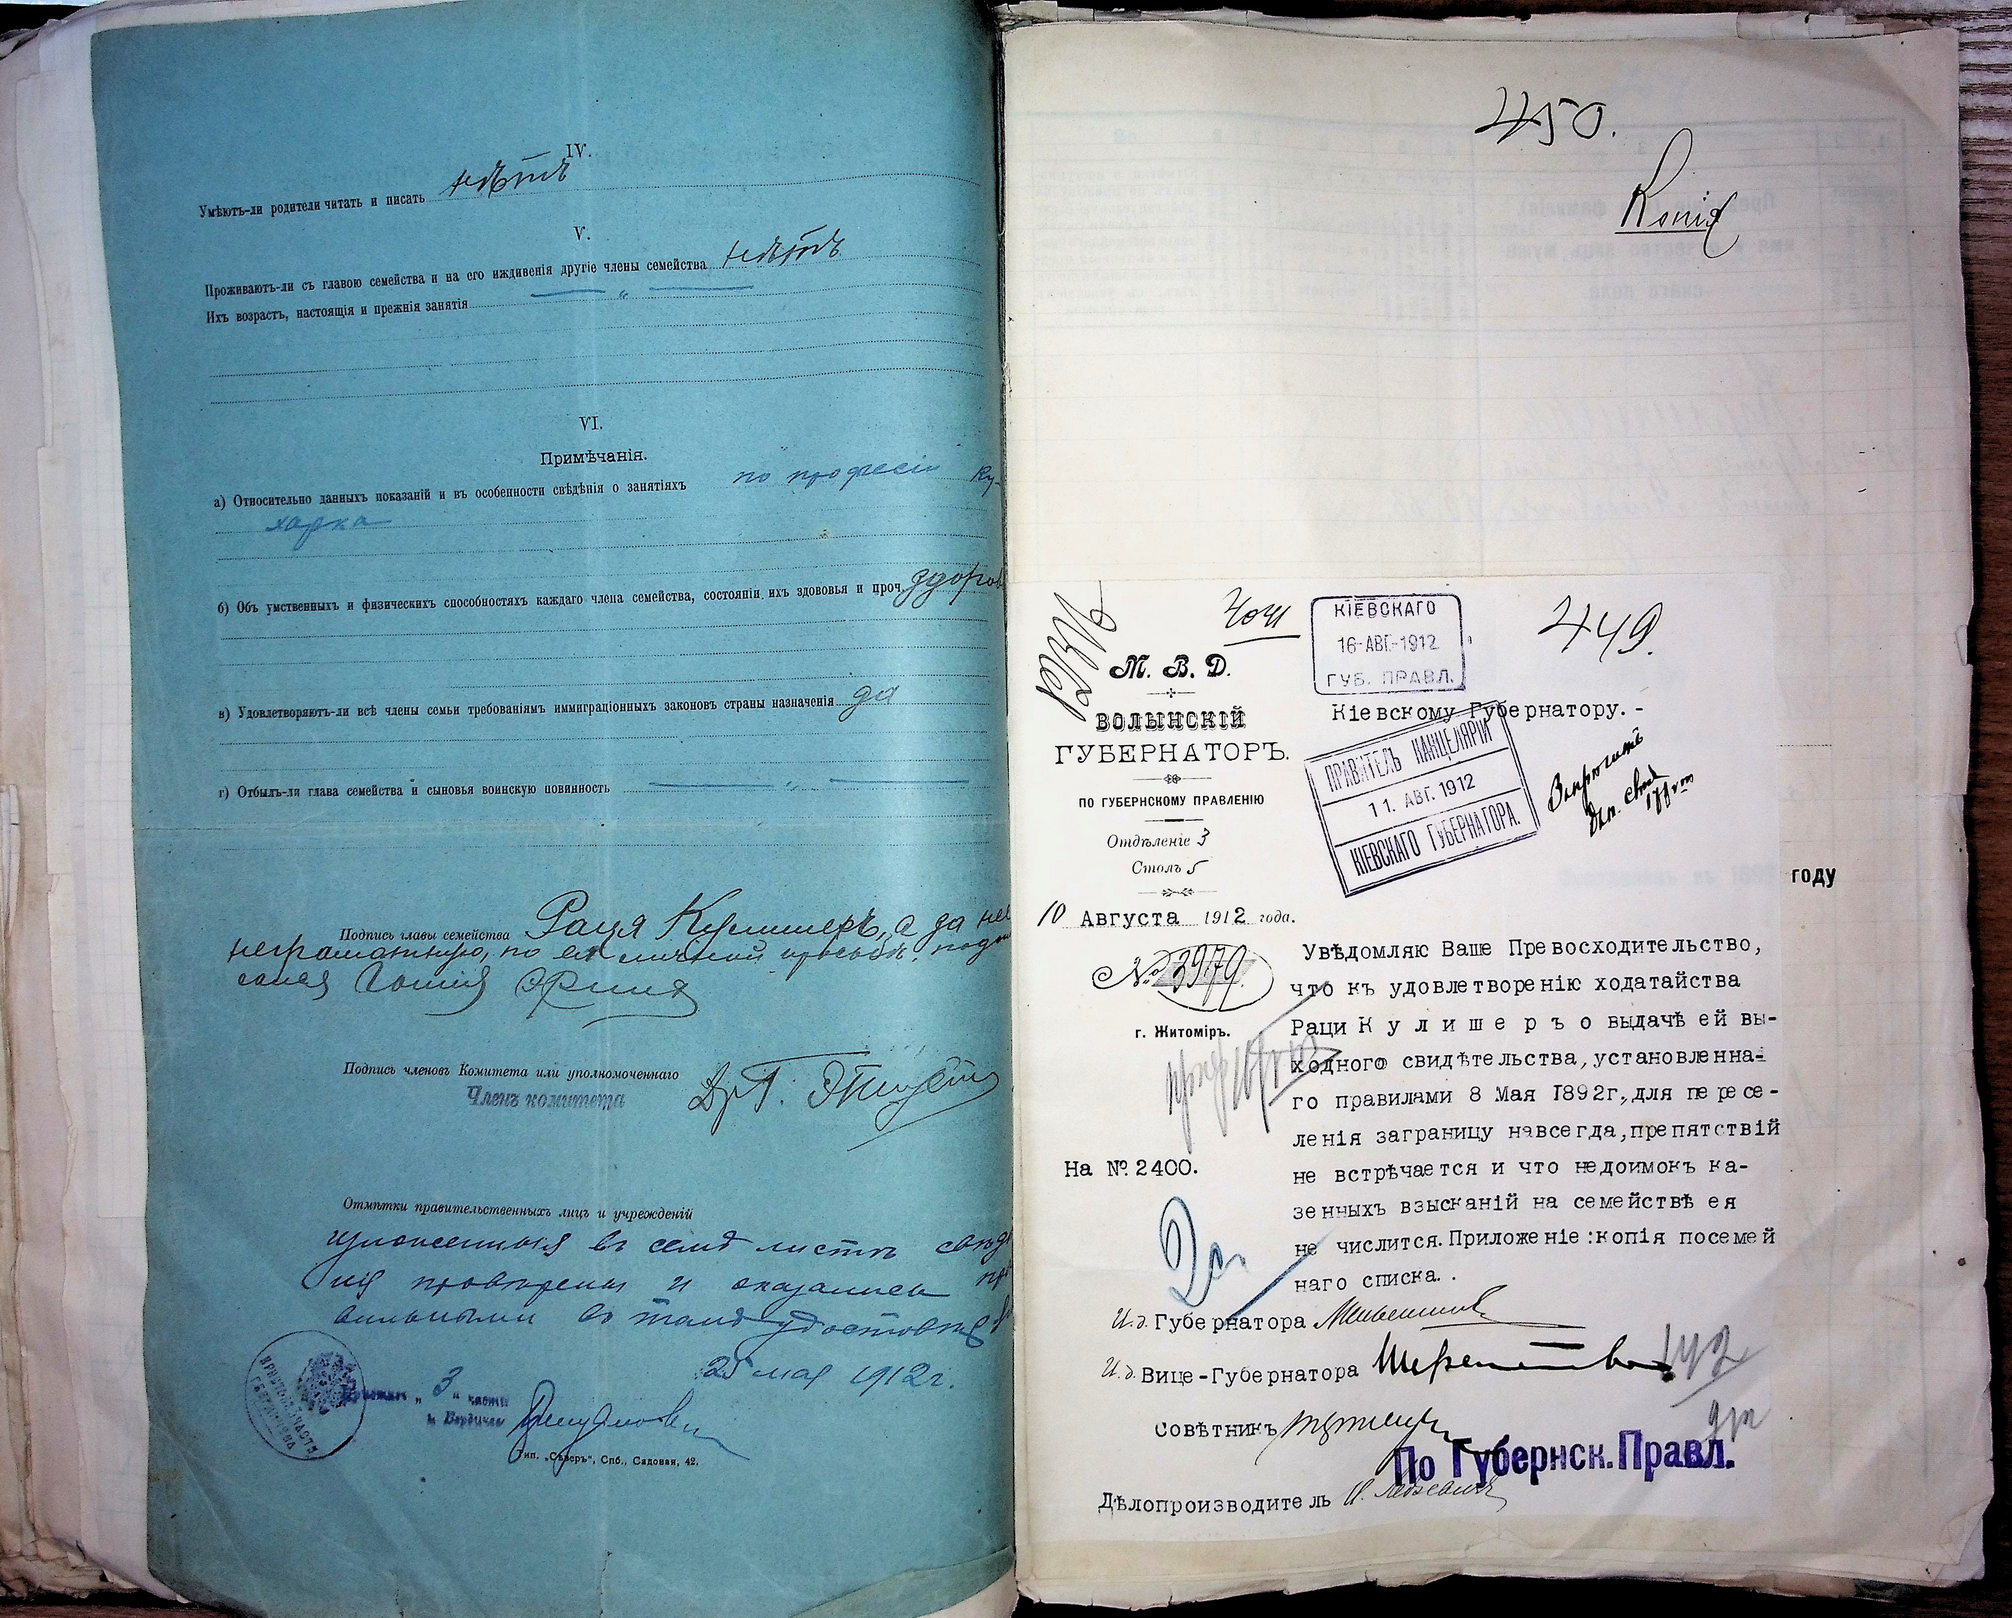 IV.
Умѣютъ-ли родители читать и писать нѣтъ
V.
Проживаютъ-ли съ главою семейства и на его иждивенія другіе члены семейства нѣтъ
Ихъ возрастъ, настоящія и прежнія занятія — „ —
VI.
Примѣчанія.
а) Относительно данныхъ показаній и въ особенности свѣдѣнія о занятіяхъ по професіи ку-
харка
б) Объ умственныхъ и физическихъ способностяхъ каждаго члена семейства, состояніи ихъ здововья и проч. здоров
в) Удовлетворяютъ-ли всѣ члены семьи требованіямъ иммиграціонныхъ законовъ страны назначенія да
г) Отбылъ-ли глава семейства и сыновья воинскую повинность — „ —
Подпись главы семейства Раця Кулишеръ, а за нее
неграмотную, по ея личной просьбѣ, подпи
сался
Подпись членовъ Комитета или уполномоченнаго
Членъ комитета
Др Г.
Отмѣтки правительственныхъ лицъ и учрежденій
изложенныя въ семъ листѣ свѣдѣ
нія провѣрены и оказались пра
вильными въ томъ удостовѣр
25 мая 1912 г.
Приставъ „3“ части
г. Бердичева
Тип. „Сѣверъ“, Спб., Садовая, 42.
450.
Копія
449.
КІЕВСКАГО
16-АВГ.-1912
ГУБ. ПРАВЛ.
М. В. Д.
ВОЛЫНСКІЙ
ГУБЕРНАТОРЪ.
ПО ГУБЕРНСКОМУ ПРАВЛЕНІЮ
Отдѣленіе 3
Столъ 5
10 Августа 1912 года.
№ 3979.
г. Житоміръ.
На № 2400.
Кіевскому Губернатору. -
ПРАВИТЕЛЬ КАНЦЕЛЯРІИ
11. АВГ. 1912
КІЕВСКАГО ГУБЕРНАТОРА.
году
Увѣдомляю Ваше Превосходительство,
что къ удовлетворенію ходатайства
Раци К у л и ш е р ъ о выдачѣ ей вы-
ходного свидѣтельства, установленна-
го правилами 8 Мая 1892г., для пересе-
ленія заграницу навсегда, препятствій
не встрѣчается и что недоимокъ ка-
зенныхъ взысканій на семействѣ ея
не числится. Приложеніе: копія посемей
наго списка. .
И.д. Губернатора
И.д. Вице-Губернатора
Совѣтникъ
По Губернск. Правл.
Дѣлопроизводитель